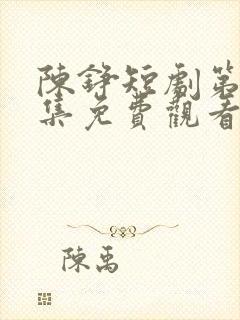 陳錚短劇第
集免費觀看
陳禹